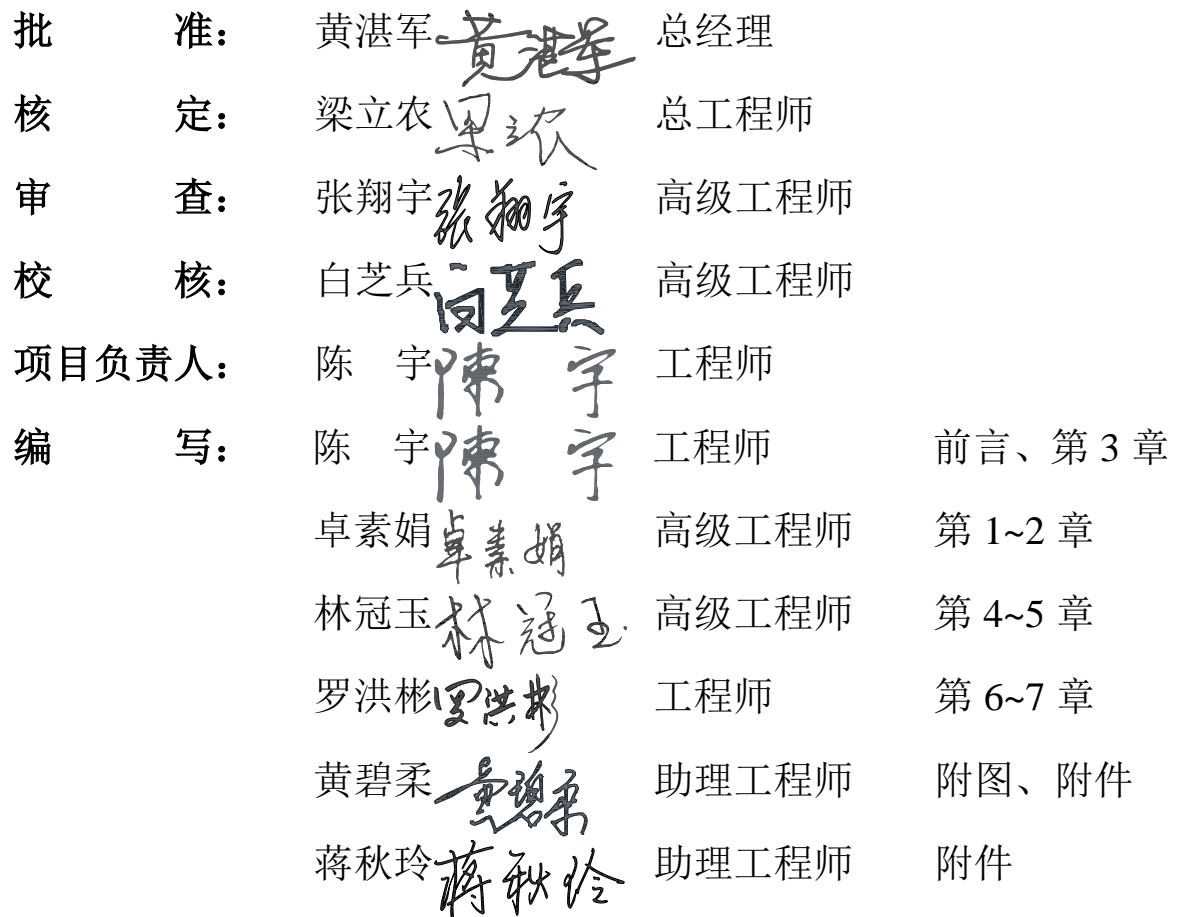 批 准： 黄湛军 黄湛军 总经理
核 定： 梁立农 梁立农 总工程师
审 查： 张翔宇 张翔宇 高级工程师
校 核： 白芝兵 白芝兵 高级工程师
项目负责人： 陈 宇 陳 宇 工程师
编 写： 陈 宇 陳 宇 工程师 前言、第 3 章
卓素娟 卓素娟 高级工程师 第 1~2 章
林冠玉 林冠玉 高级工程师 第 4~5 章
罗洪彬 罗洪彬 工程师 第 6~7 章
黄碧柔 黄碧柔 助理工程师 附图、附件
蒋秋玲 蒋秋玲 助理工程师 附件